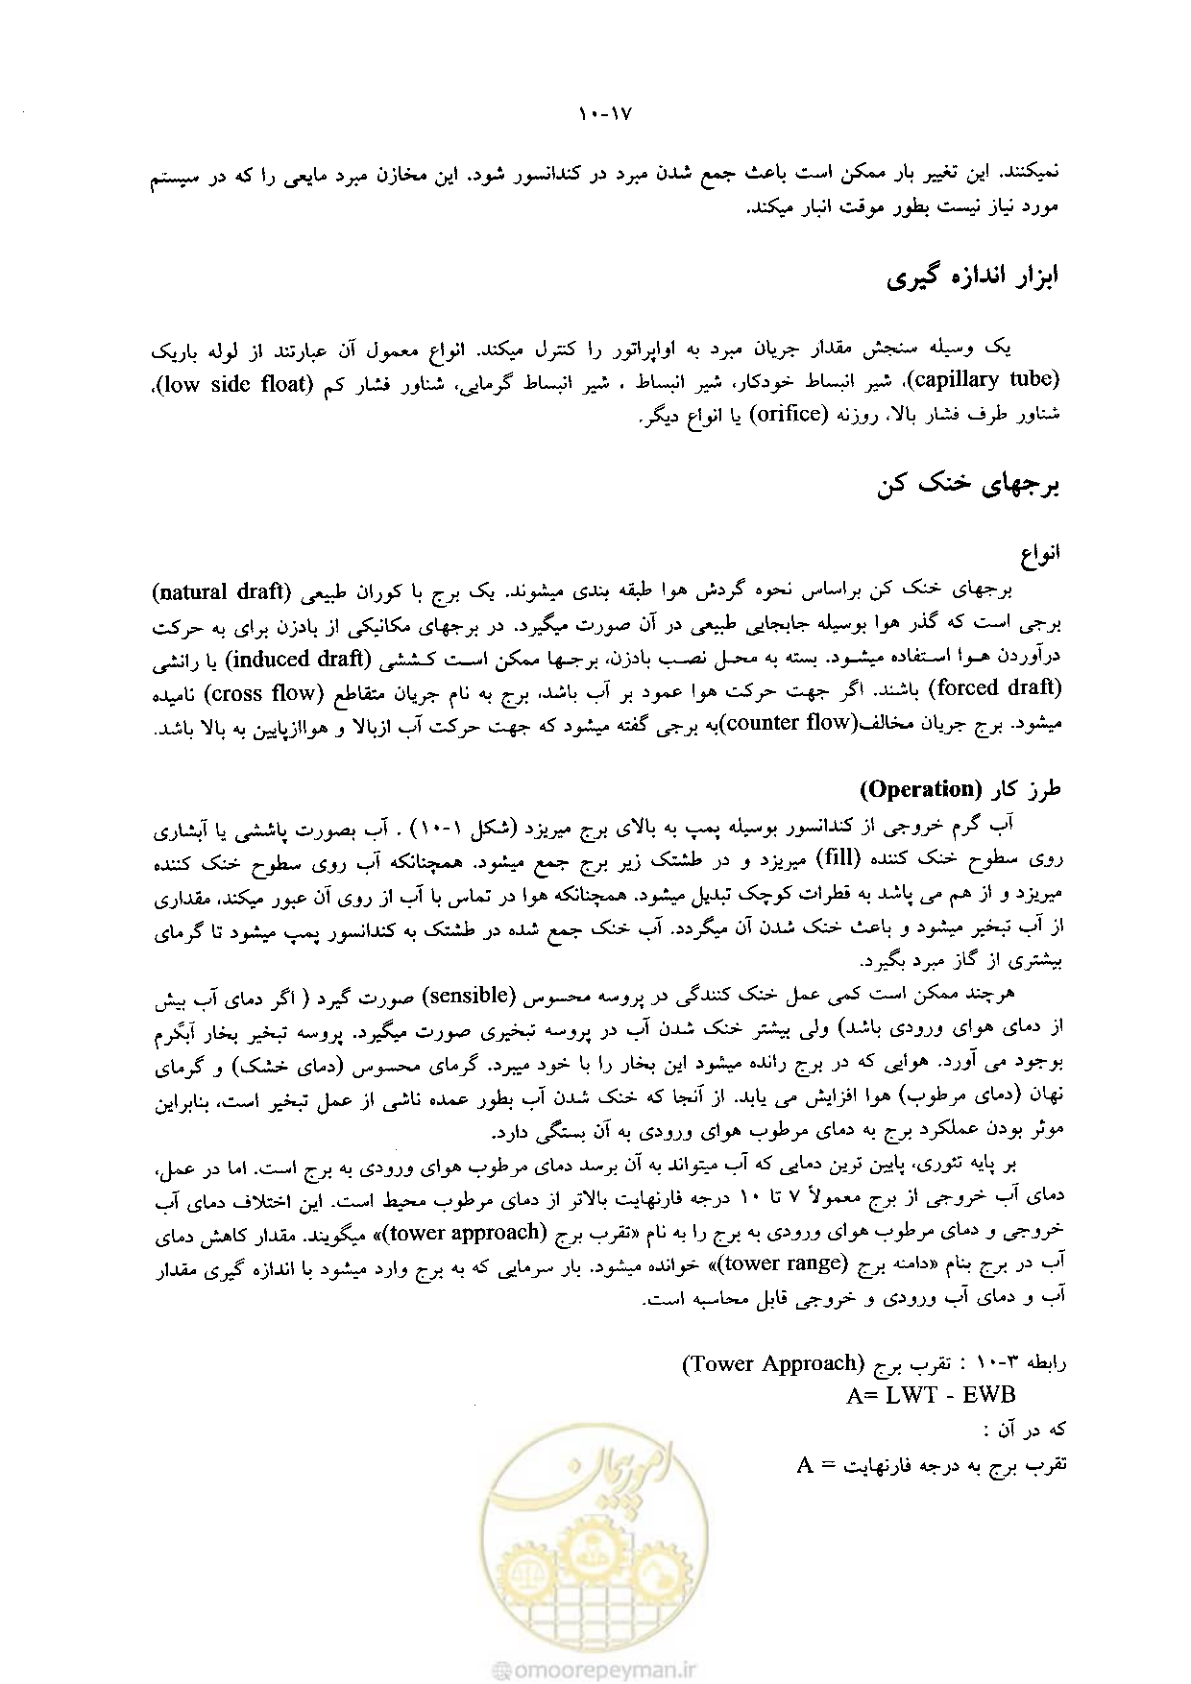 ۱۰-۱۷
نمیکنند. این تغییر بار ممکن است باعث جمع شدن مبرد در کندانسور شود. این مخازن مبرد مایعی را که در سیستم
مورد نیاز نیست بطور موقت انبار میکند.
ابزار اندازه گیری
یک وسیله سنجش مقدار جریان مبرد به اواپراتور را کنترل میکند. انواع معمول آن عبارتند از لوله باریک
(capillary tube)، شیر انبساط خودکار، شیر انبساط ، شیر انبساط گرمایی، شناور فشار کم (low side float)،
شناور طرف فشار بالا، روزنه (orifice) یا انواع دیگر.
برجهای خنک کن
انواع
برجهای خنک کن براساس نحوه گردش هوا طبقه بندی میشوند. یک برج با کوران طبیعی (natural draft)
برجی است که گذر هوا بوسیله جابجایی طبیعی در آن صورت میگیرد. در برجهای مکانیکی از بادزن برای به حرکت
درآوردن هوا استفاده میشود. بسته به محل نصب بادزن، برجها ممکن است کششی (induced draft) یا رانشی
(forced draft) باشند. اگر جهت حرکت هوا عمود بر آب باشد، برج به نام جریان متقاطع (cross flow) نامیده
میشود. برج جریان مخالف(counter flow)به برجی گفته میشود که جهت حرکت آب ازبالا و هواازپایین به بالا باشد.
طرز کار (Operation)
آب گرم خروجی از کندانسور بوسیله پمپ به بالای برج میریزد (شکل ۱-۱۰) . آب بصورت پاششی یا آبشاری
روی سطوح خنک کننده (fill) میریزد و در طشتک زیر برج جمع میشود. همچنانکه آب روی سطوح خنک کننده
میریزد و از هم می پاشد به قطرات کوچک تبدیل میشود. همچنانکه هوا در تماس با آب از روی آن عبور میکند، مقداری
از آب تبخیر میشود و باعث خنک شدن آن میگردد. آب خنک جمع شده در طشتک به کندانسور پمپ میشود تا گرمای
بیشتری از گاز مبرد بگیرد.
هرچند ممکن است کمی عمل خنک کنندگی در پروسه محسوس (sensible) صورت گیرد ( اگر دمای آب بیش
از دمای هوای ورودی باشد) ولی بیشتر خنک شدن آب در پروسه تبخیری صورت میگیرد. پروسه تبخیر بخار آبگرم
بوجود می آورد. هوایی که در برج رانده میشود این بخار را با خود میبرد. گرمای محسوس (دمای خشک) و گرمای
نهان (دمای مرطوب) هوا افزایش می یابد. از آنجا که خنک شدن آب بطور عمده ناشی از عمل تبخیر است، بنابراین
موثر بودن عملکرد برج به دمای مرطوب هوای ورودی به آن بستگی دارد.
بر پایه تئوری، پایین ترین دمایی که آب میتواند به آن برسد دمای مرطوب هوای ورودی به برج است. اما در عمل،
دمای آب خروجی از برج معمولاً ۷ تا ۱۰ درجه فارنهایت بالاتر از دمای مرطوب محیط است. این اختلاف دمای آب
خروجی و دمای مرطوب هوای ورودی به برج را به نام «تقرب برج (tower approach)» میگویند. مقدار کاهش دمای
آب در برج بنام «دامنه برج (tower range)» خوانده میشود. بار سرمایی که به برج وارد میشود با اندازه گیری مقدار
آب و دمای آب ورودی و خروجی قابل محاسبه است.
رابطه ۳-۱۰ : تقرب برج (Tower Approach)
A= LWT - EWB
که در آن :
تقرب برج به درجه فارنهایت = A
امورپیمان
@omoorepeyman.ir